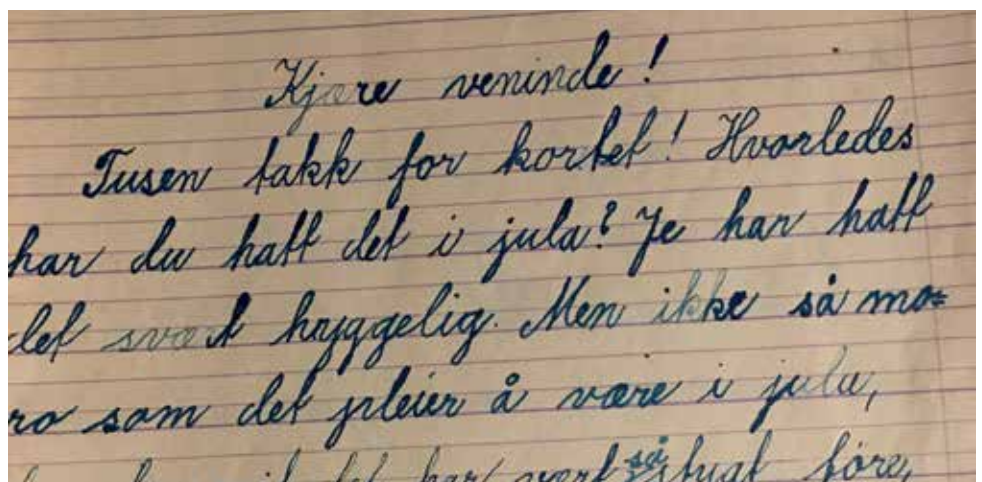 Kjære veninde!
Tusen takk for kortet! Hvorledes
har du hatt det i jula? Je har hatt
det svært hyggelig. Men ikke så mo=
ro som det pleier å være i jula,
det har vært så stygt före,